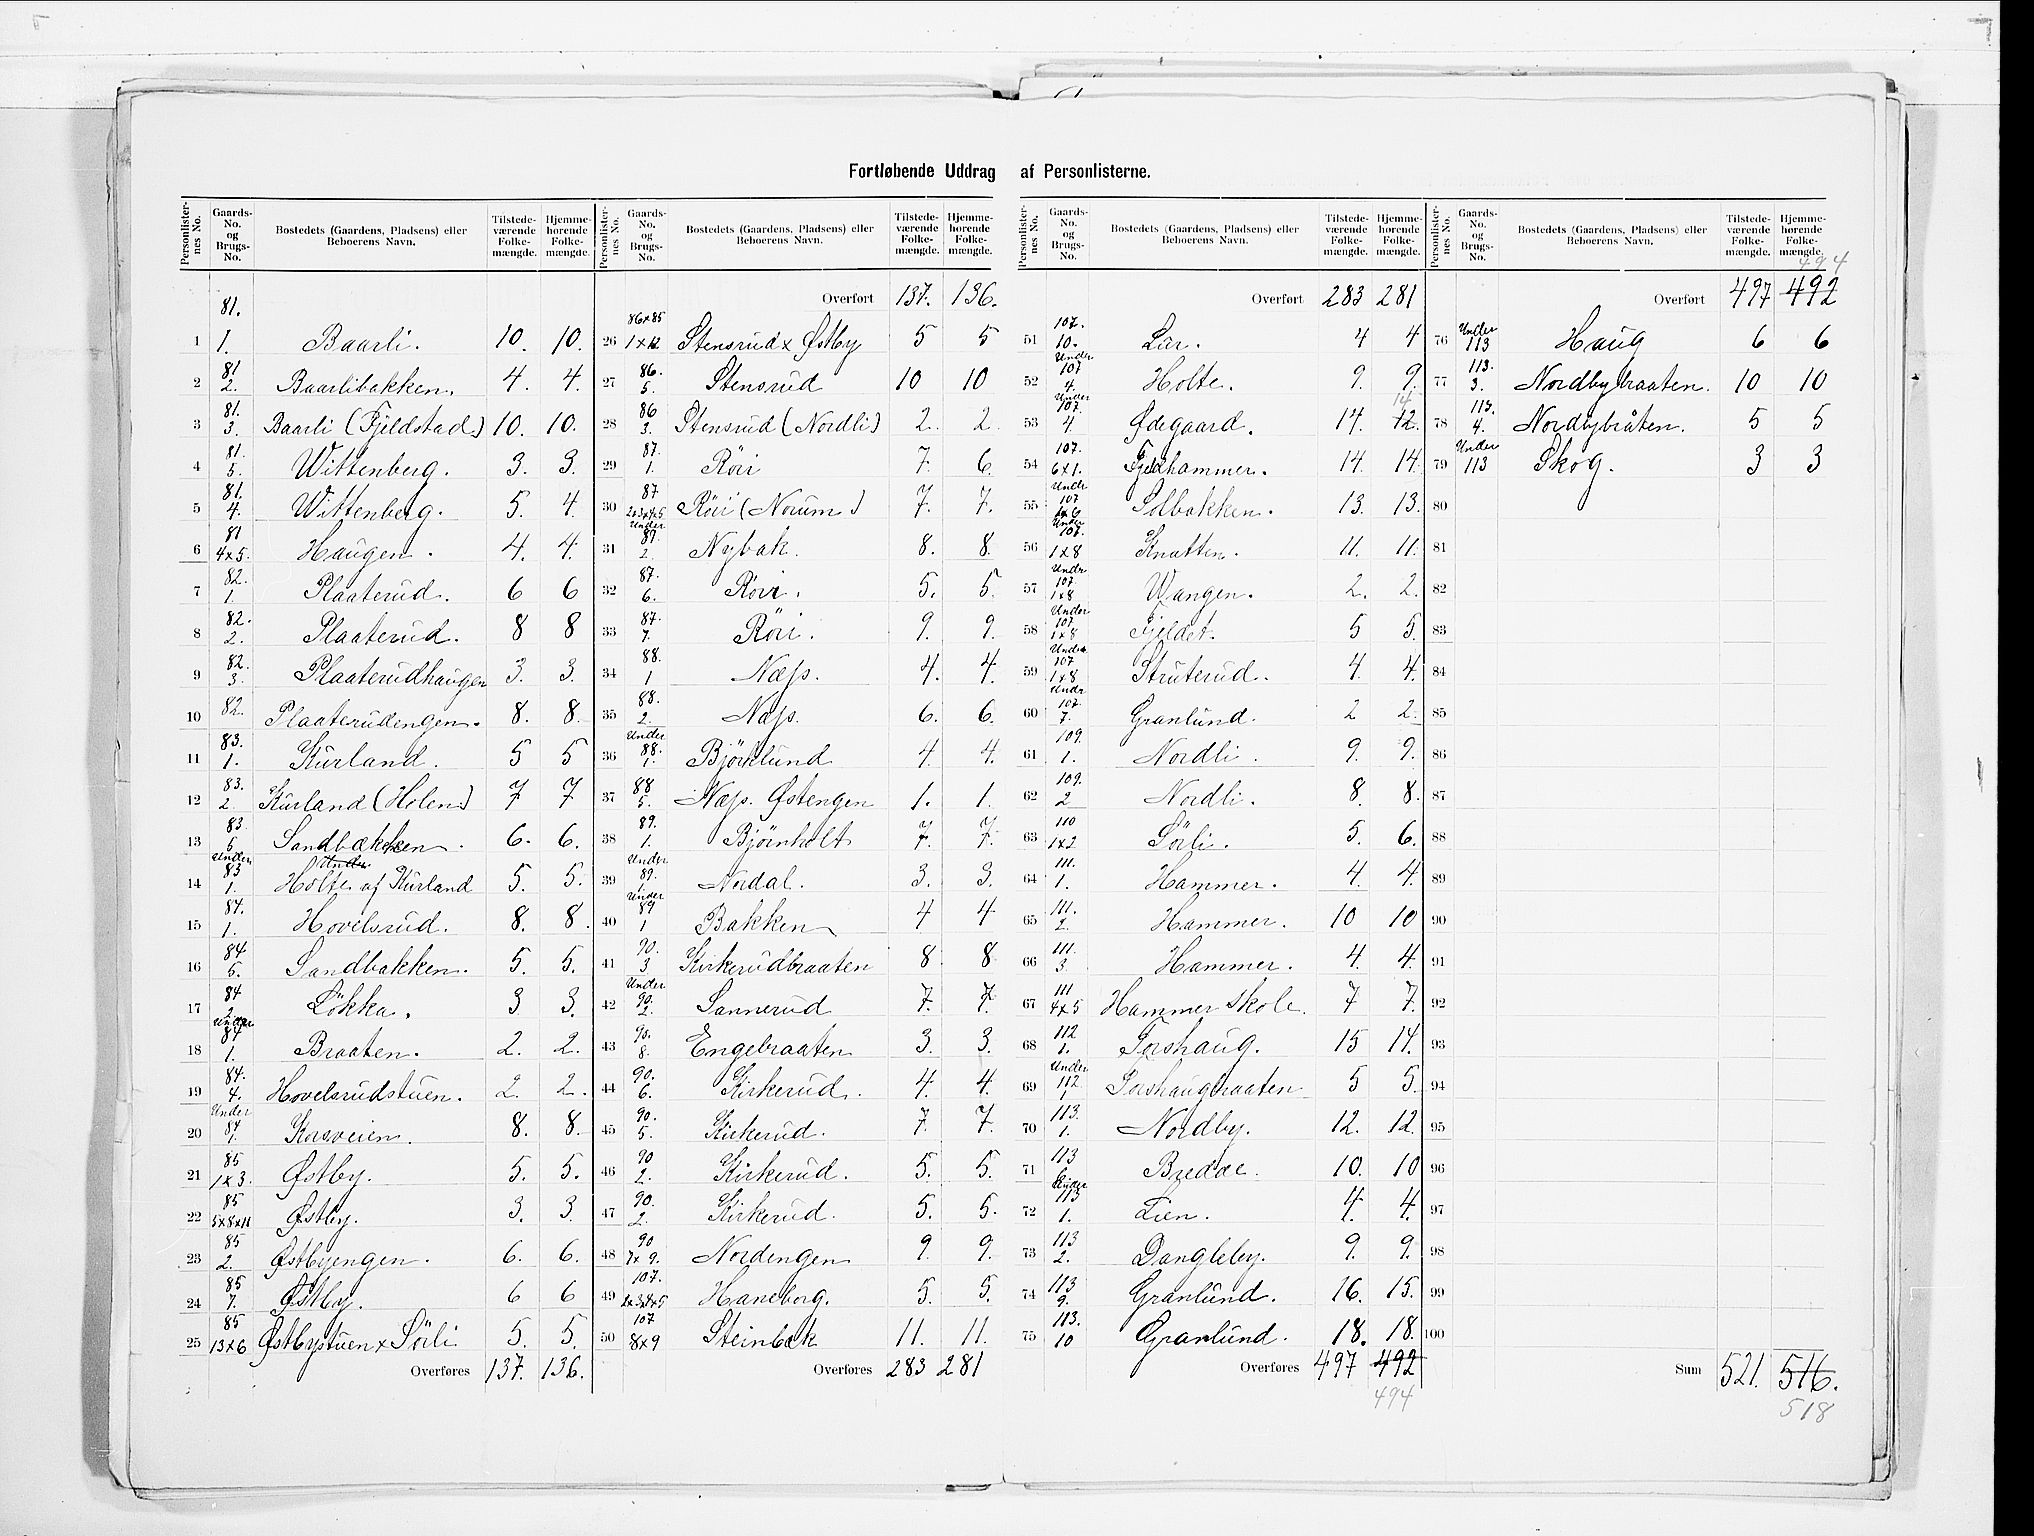 Fortløbende Uddrag af Personlisterne.
Personlisternes No. Gaards-No. og Brugs-No. Bostedets (Gaardens, Pladsens) eller Beboerens Navn. Tilstedeværende Folkemængde. Hjemmehørende Folkemængde.
1 81. 1. Baarli. 10. 10.
2 81 2. Baarlibakken. 4. 4.
3 81. 3. Baarli (Fjeldstad) 10. 10.
4 81. 5. Wittenberg. 3. 3.
5 81. 4. Wittenberg. 5. 4.
6 81 4x5. Haugen. 4. 4.
7 82. 1. Plaaterud. 6 6
8 82. 2. Plaaterud. 8 8
9 82. 3. Plaaterudhaugen 3. 3.
10 82. Plaaterudengen. 8. 8.
11 83. 1. Kurland. 5 5
12 83. 2. Kurland (Holen) 7 7
13 83. 5 Sandbækken. 6. 6.
14 Under 83 1. Holte under af Kurland 5. 5.
15 84. 1. Hovelsrud. 8. 8.
16 84 5. Sandbakken. 5. 5.
17 84 2. Lökka. 3 3.
18 Under 84 1. Braaten. 2. 2.
19 84. 4. Hovelsrudstuen. 2. 2.
20 Under 84 1. Korsveien. 8. 8.
21 85 1x3. Østby. 5. 5.
22 85 5x8x11 Østby. 3. 3.
23 85 2. Østbyengen. 6. 6.
24 85 7. Østby. 6 6
25 85 13x6 Østbystuen x Sörli 5. 5.
Overføres 137. 136.
Personlisternes No. Gaards-No. og Brugs-No. Bostedets (Gaardens, Pladsens) eller Beboerens Navn. Tilstedeværende Folkemængde. Hjemmehørende Folkemængde.
Overført 137. 136.
26 86x85 1x12 Stensrud x Østby 5 5
27 86. 5. Stensrud 10 10
28 86 3. Stensrud (Nordli) 2. 2.
29 87. 1. Röii 7. 6.
30 87 2x3x4x5 Röii (Norum) 7. 7.
31 Under 87. 2. Nybak. 8. 8.
32 87. 6. Röii. 5. 5.
33 87. 7. Röii. 9. 9.
34 88. 1 Næss. 4. 4.
35 88. 2. Næss. 6. 6.
36 Under 88. 1. Bjørklund 4. 4.
37 88 5. Næss. Østengen 1. 1.
38 89. 1. Bjørnholt 7. 7.
39 Under 89. 1. Nordal. 3. 3.
40 Under 89 1 Bakken 4 4
41 90. 3 Kirkerudbraaten 8 8
42 Under 90. 2. Sannerud 7. 7.
43 90. 8. Engebraaten 3. 3.
44 90. 6. Kirkerud. 4. 4.
45 90. 5. Kirkerud. 7. 7.
46 90 2. Kirkerud. 5. 5.
47 90. 2. Kirkerud. 5. 5.
48 90 7x9. Nordengen 9. 9.
49 107. 2x3x4x5 Haneborg. 5. 5.
50 107 8x9 Steinbæk 11. 11.
Overføres 283 281
Personlisternes No. Gaards-No. og Brugs-No. Bostedets (Gaardens, Pladsens) eller Beboerens Navn. Tilstedeværende Folkemængde. Hjemmehørende Folkemængde.
Overført 283 281
51 107. 10. Lær. 4 4
52 Under 107 4. Holte. 9. 9.
53 Under 107. 4. Ødegaard. 14. 12. 14
54 107. 6x1. Fjeldhammer. 14. 14.
55 Under 107 1x6 Solbakken. 13. 13.
56 Under 107. 1x8 Knatten. 11. 11.
57 Under 107. 1x8 Wangen. 2. 2.
58 Under 107. 1x8 Fjeldet. 5 5.
59 Under 107 1x8 Struterud. 4. 4.
60 Under 107. 7. Granlund. 2 2.
61 109. 1. Nordli. 9. 9.
62 109. 2 Nordli. 8. 8.
63 110 1x2 Sörli. 5. 6.
64 111. 1. Hammer. 4. 4.
65 111. 2. Hammer. 10 10
66 111. 3. Hammer. 4. 4.
67 111 4x5 Hammer Skole. 7 7.
68 112 1. Torshaug. 15 14.
69 Under 112 1 Torshaugbraaten 5 5.
70 113. 1. Nordby. 12. 12.
71 113 6 Bredde. 10. 10
72 Under 113 1. Lien. 4. 4.
73 113 2. Dangleby. 9. 9.
74 113 9. Granlund. 16. 15.
75 113. 10 Granlund. 18. 18.
Overføres 497 492
494
Personlisternes No. Gaards-No. og Brugs-No. Bostedets (Gaardens, Pladsens) eller Beboerens Navn. Tilstedeværende Folkemængde. Hjemmehørende Folkemængde.
494
Overført 497 492
76 Under 113 Haug 6 6
77 113. 3. Nordbybraaten. 10 10
78 113. 4. Nordbybråten. 5 5
79 Under 113 Skog. 3 3
80
81
82
83
84
85
86
87
88
89
90
91
92
93
94
95
96
97
98
99
100
Sum 521. 516.
518